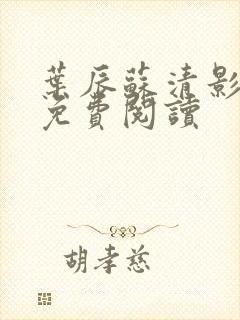 葉辰蘇清影
免費閱讀
胡孝慈